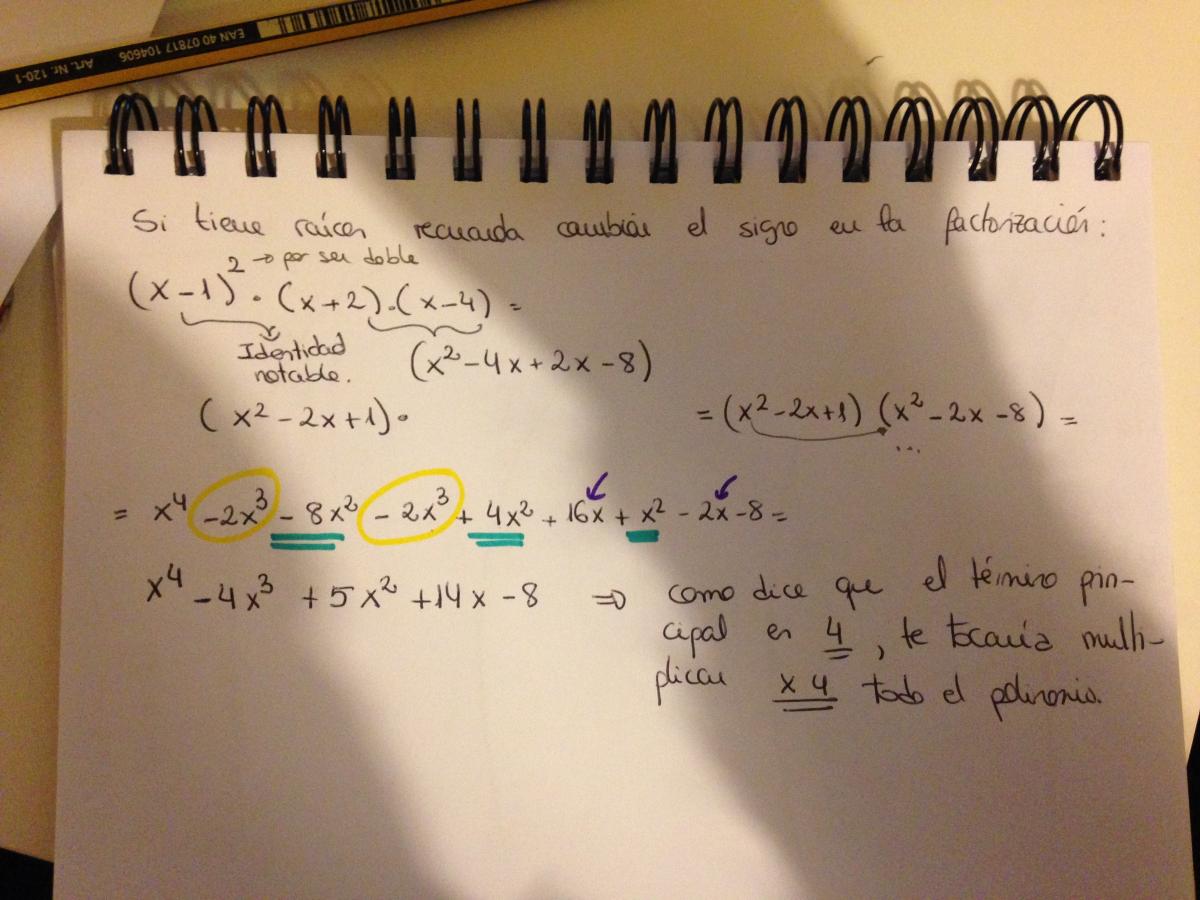 EAN 40 07817 104606
Art. Nr. 120-1
Si tiene raíces recuerda cambiar el signo en la factorización:
(x-1)² → por ser doble
(x-1)² · (x+2)·(x-4) =
Identidad
notable.
(x²-4x+2x-8)
(x²-2x+1)·
= (x²-2x+1) (x²-2x-8) =
...
= x⁴ -2x³ - 8x² - 2x³ + 4x² + 16x + x² - 2x -8 =
x⁴ -4x³ +5x² +14x -8 ⇒ como dice que el término prin-
cipal es 4, te tocaría multi-
plicar x 4 todo el polinomio.